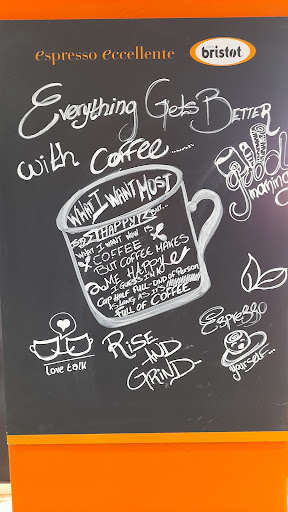 espresso eccellente
bristot
Everything Gets Better
with Coffee........
good
morning
WHAT I WANT MOST
HAPPY BUT...
WHAT I WANT NOW IS
COFFEE
BUT COFFEE MAKES
ME HAPPY
I GUESS I'M A
CUP HALF FULL-KIND OF PERSON
AS LONG AS IT'S
FULL OF COFFEE
love talk
RISE
AND
GRIND
Espresso
yourself...